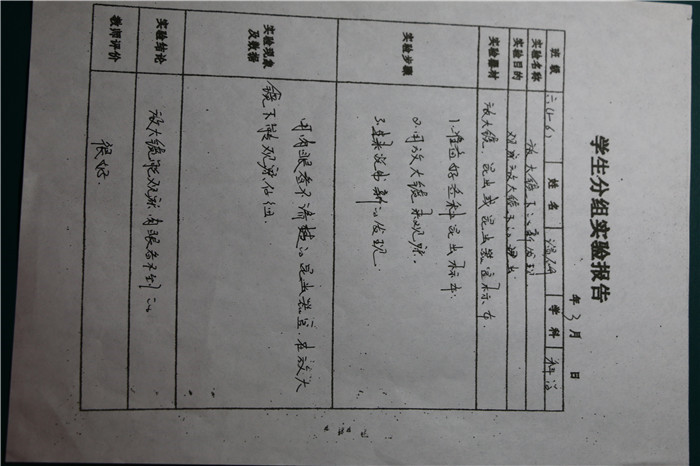 学生分组实验报告
年 3 月 日
班级 六(1-6) 姓名 学科 科学
实验名称 放大镜下的新发现
实验目的 观察放大镜下的昆虫
实验器材 放大镜、昆虫或昆虫器官标本
实验步骤 1.准备好各种昆虫标本.
2.用放大镜来观察.
3.结果说出新的发现.
实验现象及数据 用肉眼看不清楚的昆虫器官,在放大
镜下能观察仔细.
实验结论 放大镜能观察肉眼看不到的
教师评价 很好.